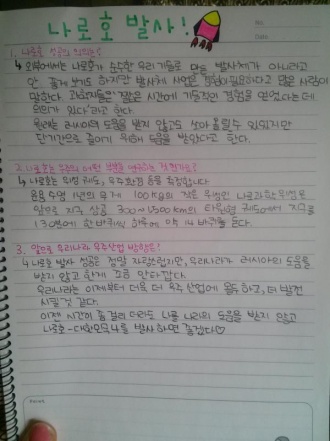 나로호 발사!
1. 나로호 성공의 의의는?
↳ 외부에서는 나로호가 순수한 우리 기술로 만든 발사체가 아니라고
안 좋게 보기도 하지만 발사체 사업은 경험이 필요하다고 많은 사람이
말한다. 과학자들은 "짧은 시간에 기술적인 경험을 얻었다는데
의의가 있다"라고 한다.
러시아의 도움을 받지 않고도 쏘아올릴 수 있었지만
단기간으로 줄이기 위해 도움을 받았다고 한다.
2. 나로호는 우주의 어떤
↳ 나로호는 위성 궤도, 우주환경 등을 측정합니다
운용 수명 1년의 무게 100kg의 작은 위성인 나로과학위성은
앞으로 지구 상공 300~1500km의 타원형 궤도에서 지구를
103분에 한바퀴씩 하루에 약 14바퀴를 돈다.
3. 앞으로 우리나라 우주산업 방향은?
↳ 나로호 발사 성공은 정말 자랑스럽지만, 우리나라가 러시아의 도움을
받지 않고 한게 조금 안타깝다.
우리나라는 이제부터 더욱 더 우주 산업에 몰두하고, 더 발전
시킬것 같다.
이젠 시간이 좀 걸리더라도 다른 나라의 도움을 받지 않고
나로호-대한민국호를 발사하면 좋겠다♡